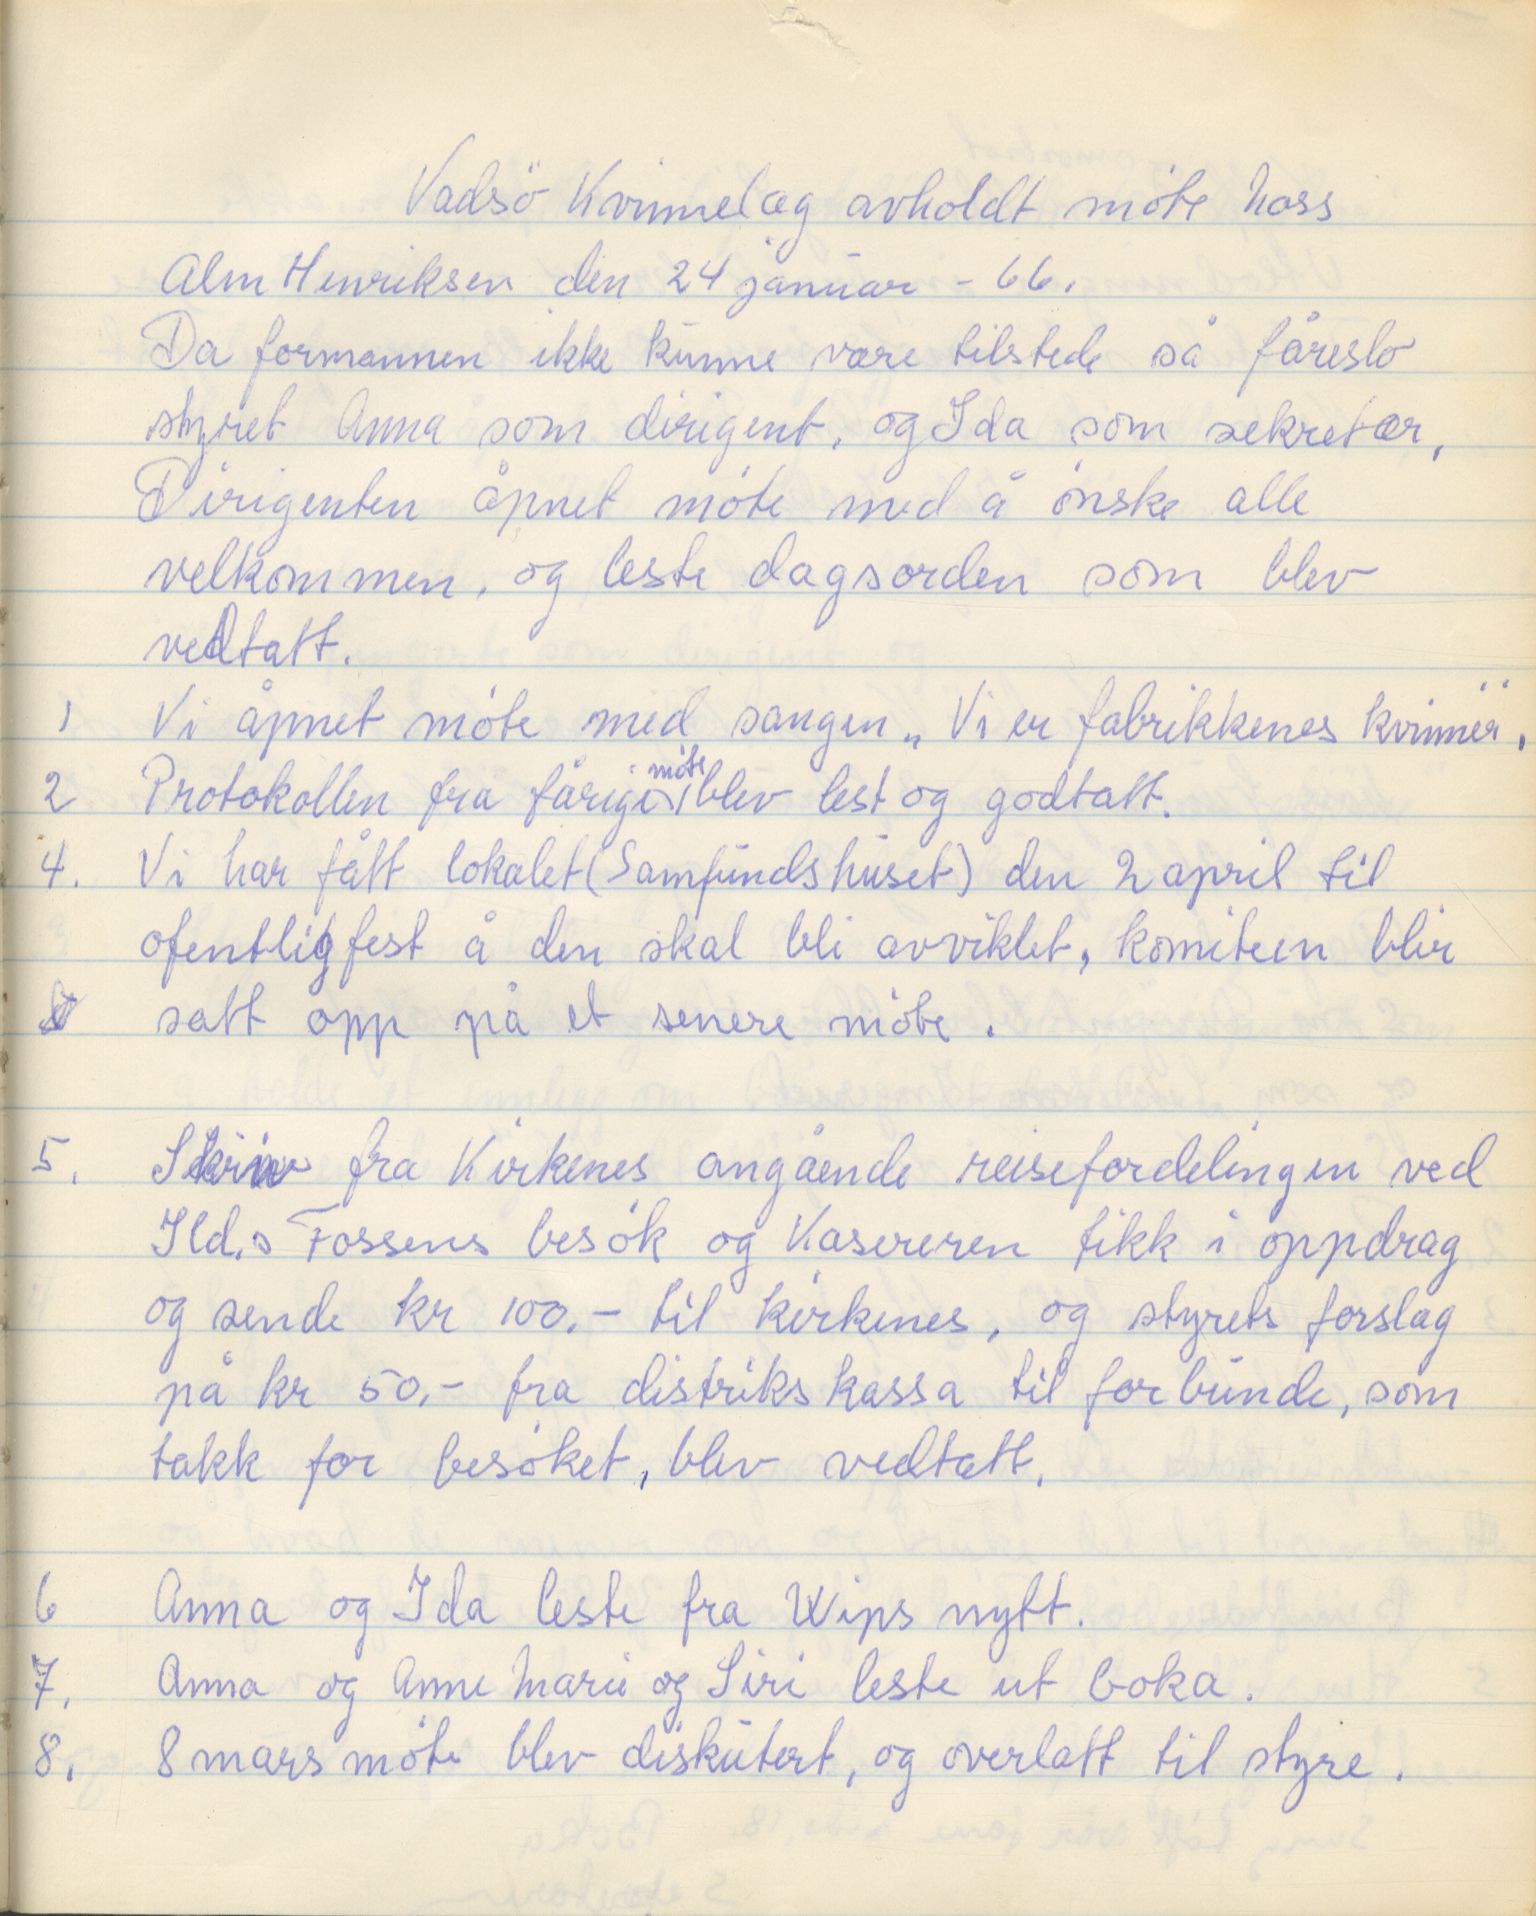 Vadsö Kvinnelag avholdt möte hoss
Alm Henriksen den 24 januar - 66.
Da formannen ikke kunne være tilstede så føreslo
styret Anna som dirigent, og Ida som sekretær,
Dirigenten åpnet möte med å önske alle
velkommen, og leste dagsorden som blev
vedtatt.
1 Vi åpnet möte med sangen „Vi er fabrikkenes kvinner".
2 Protokollen fra fårige möte blev lest og godtatt.
4. Vi har fått lokalet (Samfundshuset) den 2 april til
ofentlig fest å den skal bli avviklet, komiteen blir
satt opp på et senere möte.
5. Skriv fra Kirkenes angående reisefordelingen ved
Ild.s Fossens besök og Kasereren fikk i oppdrag
og sende kr 100.- til kirkenes, og styrets forslag
på kr 50.- fra distriks kassa til forbunde, som
takk for besöket, blev vedtatt.
6 Anna og Ida leste fra Wips nytt.
7. Anna og Anne Marie og Siri leste ut boka.
8. 8 mars möte blev diskutert, og overlatt til styre.